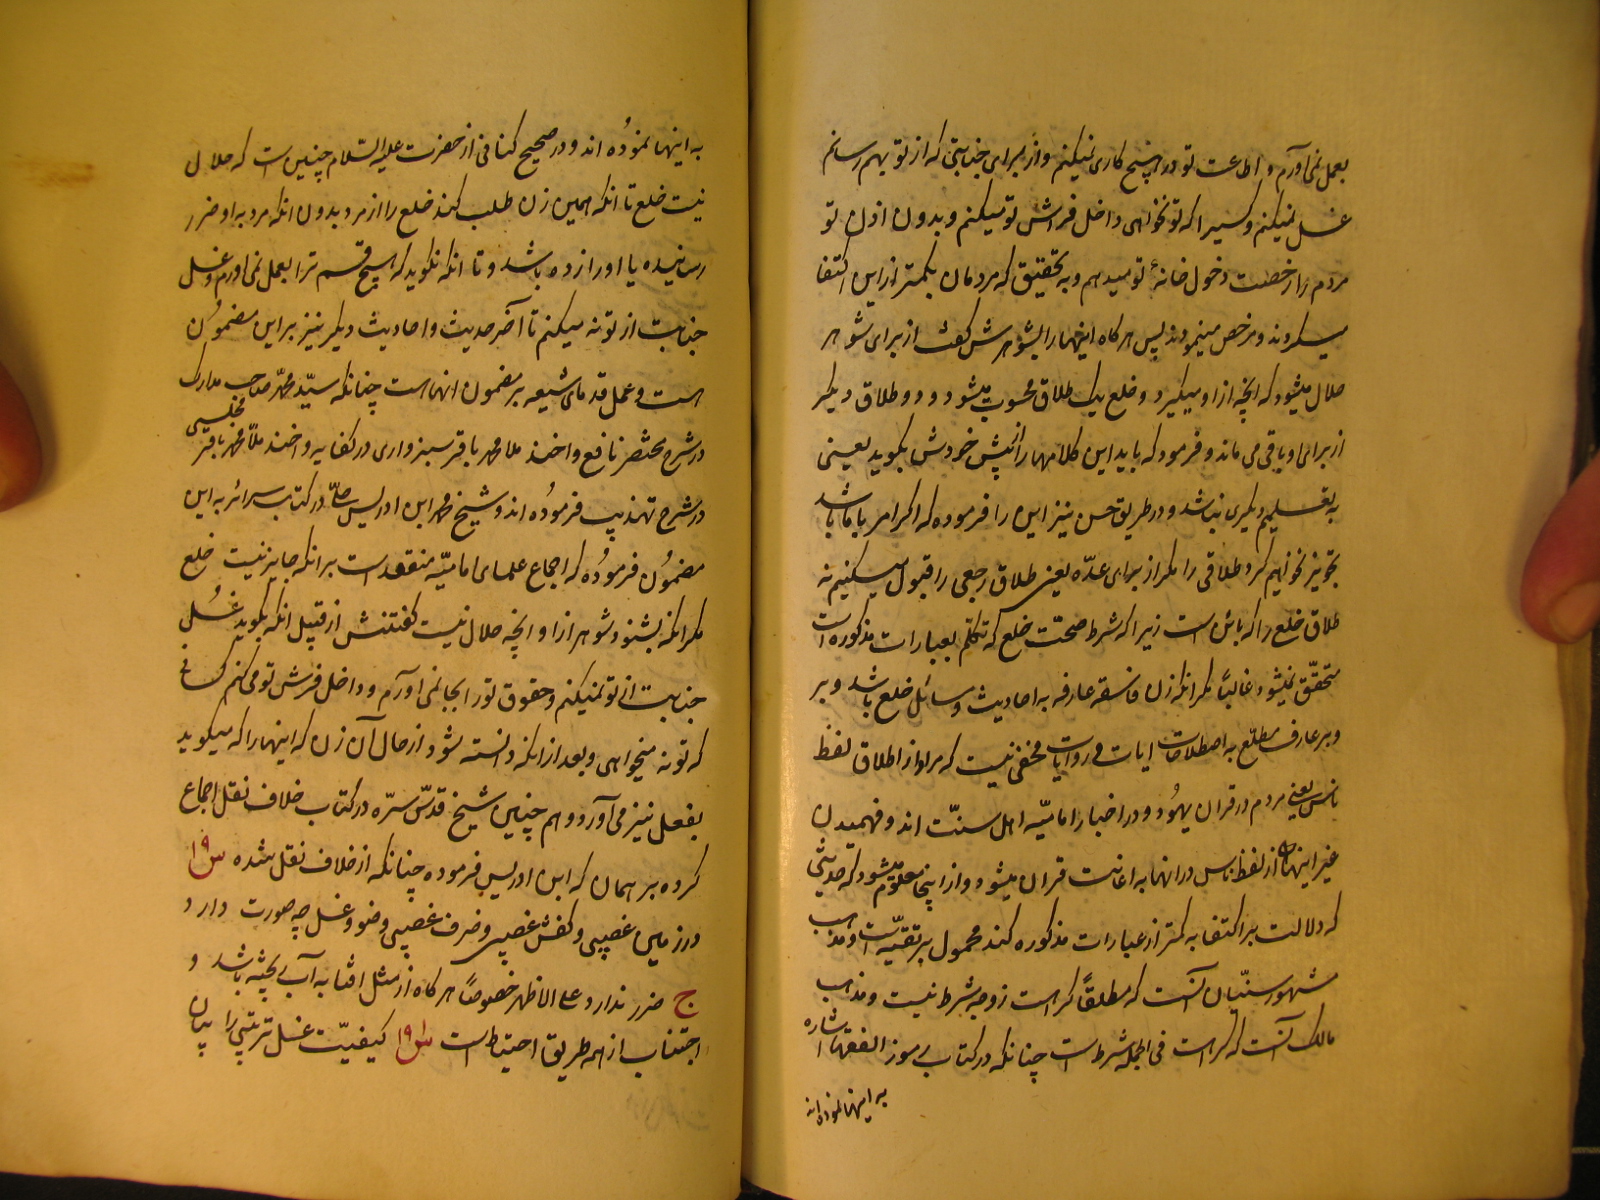 بعمل نمی‌آورم و اطاعت تو در هیچ کاری نمیکنم و از برای جنابتی که از تو بهم رسانم
غسل نمیکنم و کسیرا که تو نخواهی داخل فراش تو میکنم و بدون اذن تو
مردم را رخصت دخول خانهٔ تو میدهم و به تحقیق که مردمان بکمتر از این اکتفا
میکردند و مرخص مینمودند پس هرگاه اینها را بشوهرش گفت از برای شوهر
حلال میشود که آنچه از او میگیرد و خلع یک طلاق محسوب میشود و دو طلاق دیگر
از برای او باقی می ماند و فرمود که باید این کلامها را از پیش خودش بگوید یعنی
به تعلیم دیگری نباشد و در طریق حسن نیز این را فرموده که اگر امر با ما باشد
تجویز نخواهیم کرد طلاقی را مگر از برای عدّه یعنی طلاق رجعی را قبول میکنیم نه
طلاق خلع را که باین است زیرا که شرط صحّت خلع که تکلّم بعبارات مذکوره است
متحقّق نمیشود غالباً مگر انکه زن فاسقه عارفه به احادیث و مسائل خلع باشد و بر
و بر عارف مطلع به اصطلاحات ایات و روایات مخفی نیست که مراد از اطلاق لفظ
ناس یعنی مردم در قران یهُود و در اخبار امامیّه اهل سنّت اند و فهمیدن
غیر اینها از لفظ ناس در انها به اعانت قران میشود و از اینجا معلوم میشود که حدیثی
که دلالت بر اکتفا به کمتر از عبارات مذکوره کند محمول بر تقیّه است و مذهب
مشهور سنّیان آنست که مطلقاً کراهت زوجه شرط نیست و مذهب
مالک آنست که کراهت فی الجمله شرط است چنانکه در کتاب رموز الفقهاء اشاره
به اینها نموده اند
به اینها نموُده اند و در صحیح کنافی از حضرت علیه السّلام چنین است که حلال
نیست خلع تا انکه همین زن طلب کند خلع را از مرد بدون انکه مرد به او ضرر
رسانیده یا او را زده باشد و تا انکه نگوید که هیچ قسم ترا بعمل نمی‌اورم و غسل
جنابت از تو نه میکنم تا آخر حدیث و احادیث دیگر نیز بر این مضموُن
است و عمل قدمای شیعه بر مضمون انهاست چنانکه سیّد محمّد صاحب مدارک
در شرح مختصر نافع و اخند ملا محمد باقر سبزواری در کفایه و اخند ملّا محمد باقر مجلسی
در شرح تهذیب فرموُده اند و شیخ محمد ابن ادریس حلّی در کتاب سرائر به این
مضموُن فرموُده که اجماع علمای امامیّه منعقد است بر انکه جایز نیست خلع
مگر انکه بشنود شوهر از او آنچه حلال نیست گفتنش از قبیل انکه بگوید غسُل
جنابت از تو نمیکنم و حقوق تو را بجا نمی‌آورم و داخل فرش تو می‌کنم کسانی
که تو نه میخواهی و بعد از انکه دانسته شود از حال آن زن که اینها را که میگوید
بفعل نیز می‌آورد و هم چنین شیخ قدّس سرّه در کتاب خلاف نقل اجماع
کرده بر همان که ابن ادریس فرموده چنانکه از خلاف نقل شده س ۱۹
در زمین غصبی و کفش غصبی و ضرف غصبی وضو و غسل چه صورت دارد
ج ضرر ندارد علی الاظهر خصوصاً هرگاه از مثل افتابه آب ریخته باشد و
اجتناب از همه طریق احتیاط است س ۱۹۱ کیفیّت غسل ترتیبی را بیان